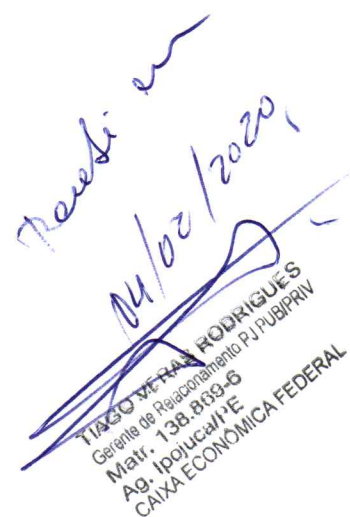 Recebi em
04/02/2020,
TIAGO VERAS RODRIGUES
Gerente de Relacionamento PJ PUB/PRIV
Matr. 138.869-6
Ag. Ipojuca/PE
CAIXA ECONÔMICA FEDERAL